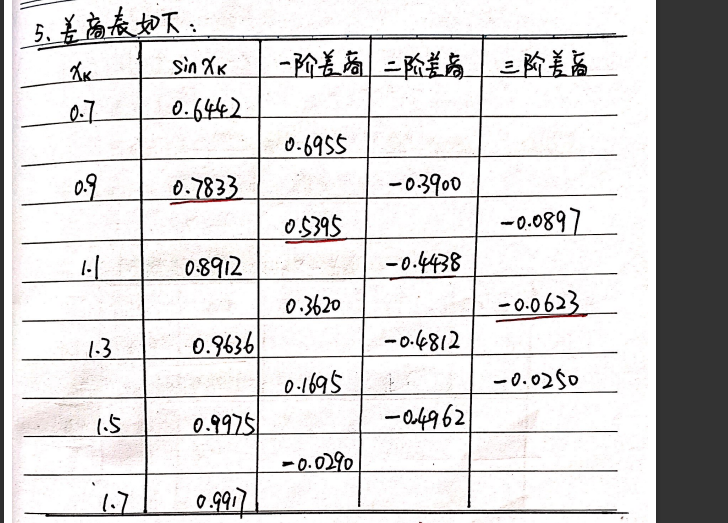 5、差商表如下：
xₖ sin xₖ 一阶差商 二阶差商 三阶差商
0.7 0.6442
0.6955
0.9 0.7833 -0.3900
0.5395 -0.0897
1.1 0.8912 -0.4438
0.3620 -0.0623
1.3 0.9636 -0.4812
0.1695 -0.0250
1.5 0.9975 -0.4962
-0.0290
1.7 0.9917